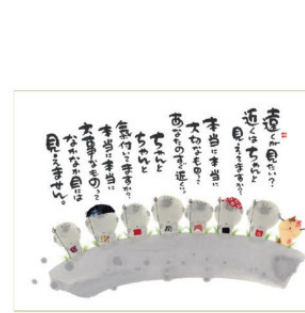 遠くが見たい?
近くはちゃんと
見えてますか?
本当に本当に
大切なものって
あなたのすぐ近くに。
ちゃんと
ちゃんと
気付いてますか?
本当に本当に
大事なものって
なかなか目には
見えません。